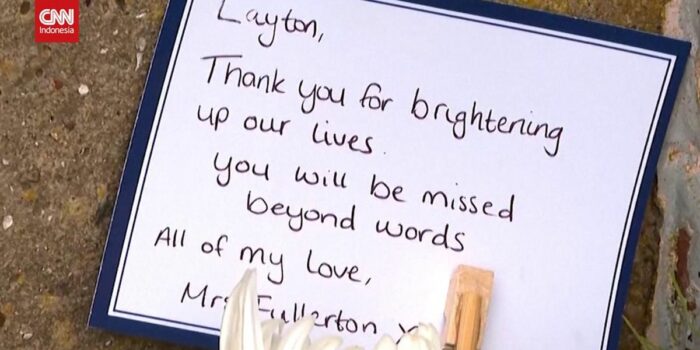 CNN
Indonesia
Layton,
Thank you for brightening
up our lives.
you will be missed
beyond words
All of my love,
Mrs Fullerton x